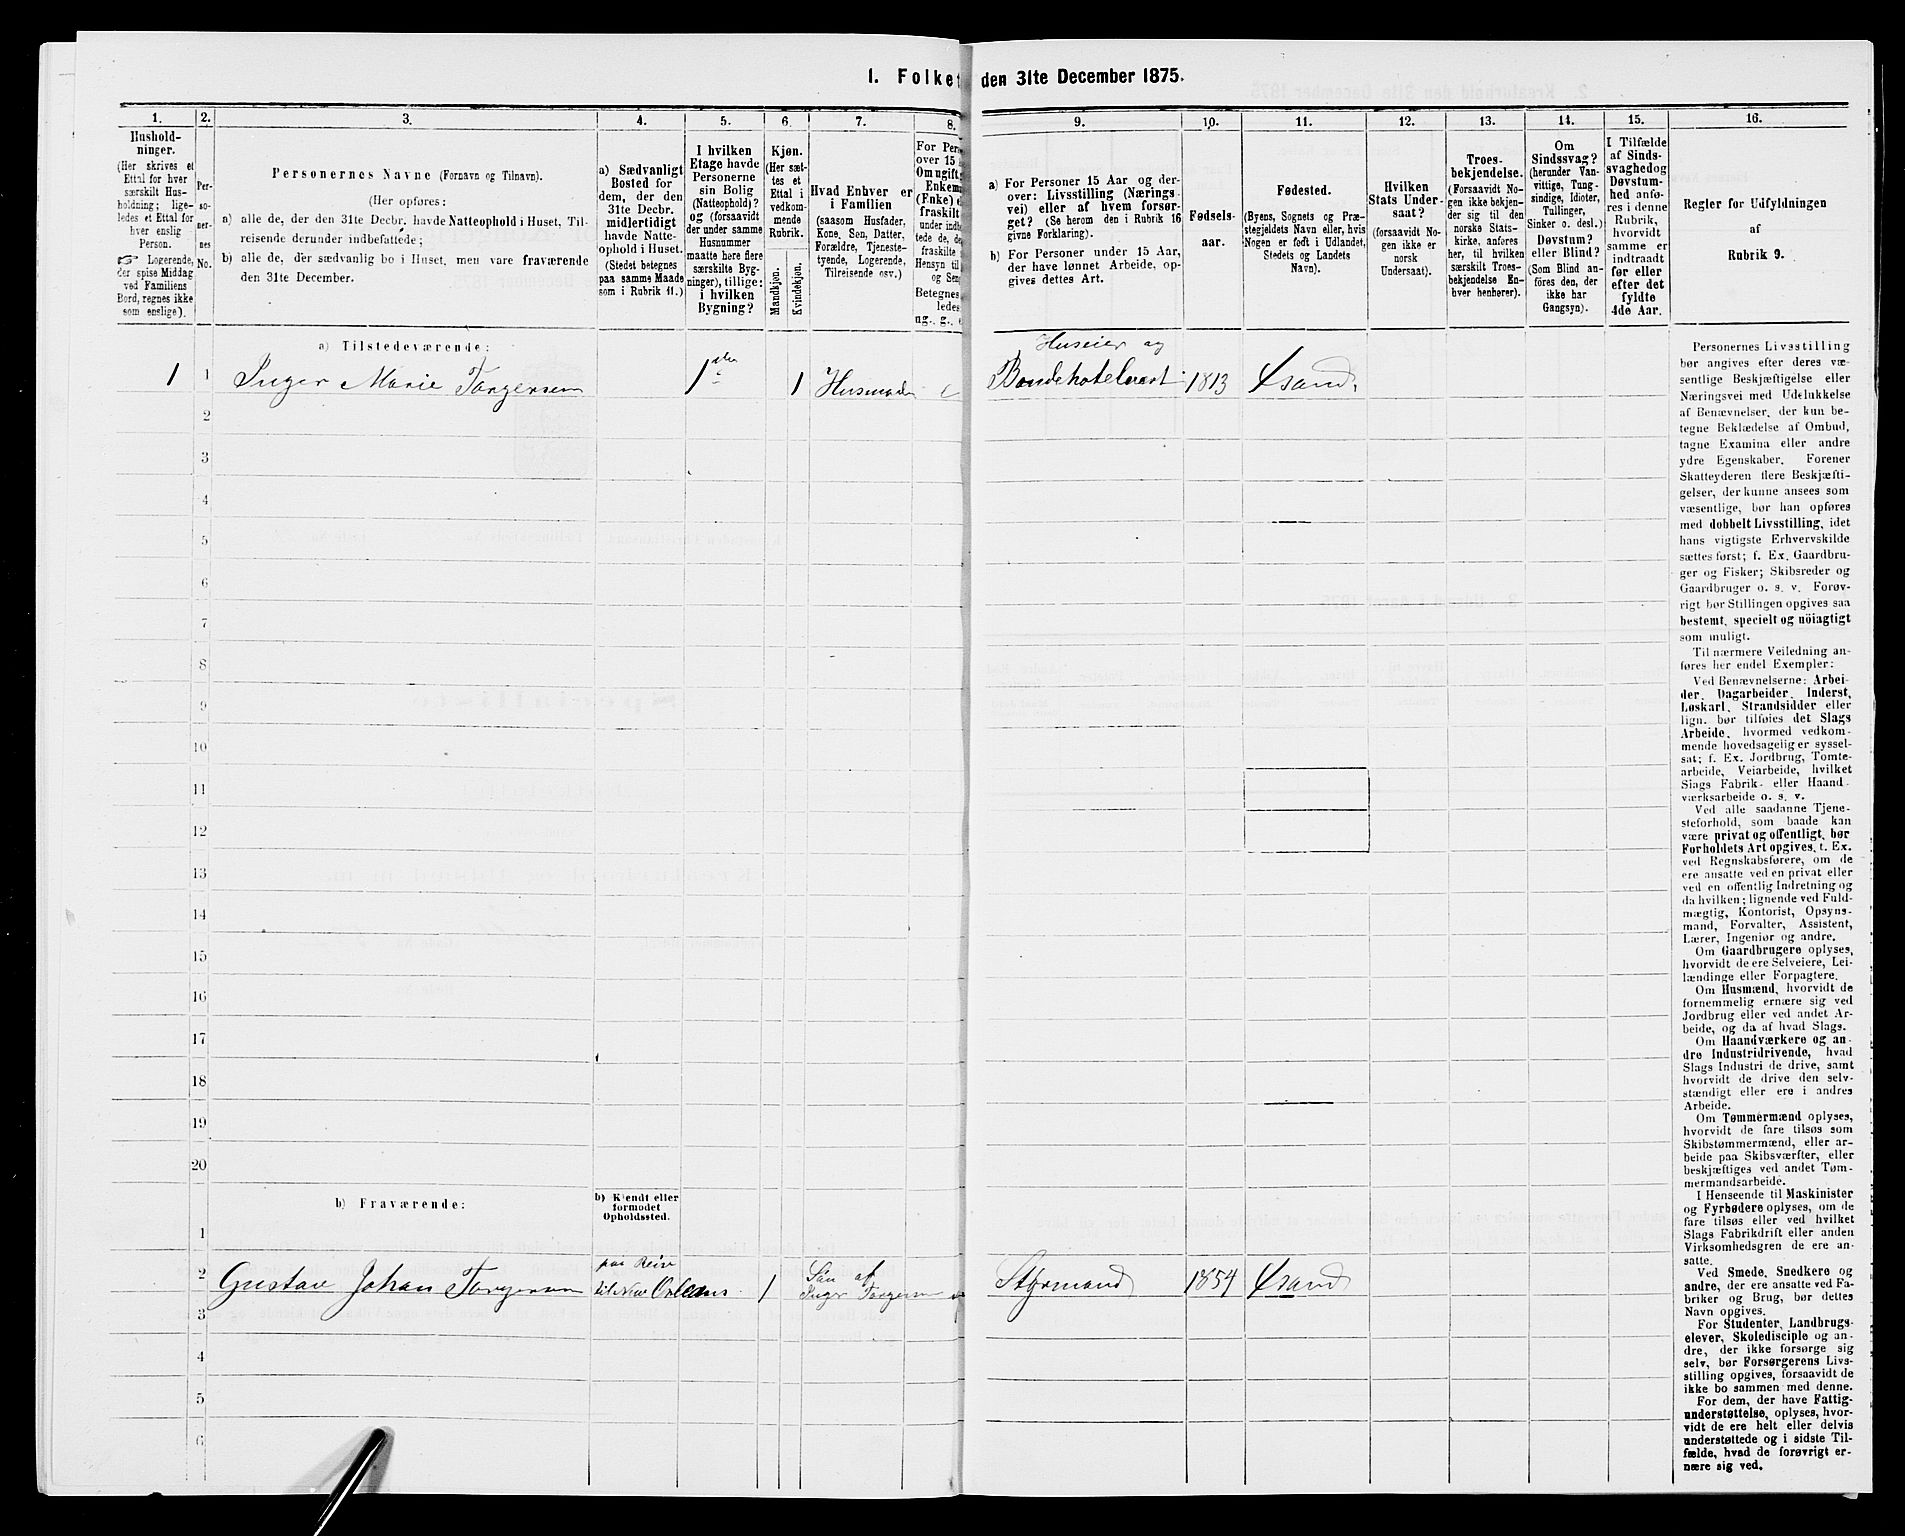 1. Folket
den 31te December 1875.
1.
Hushold-
ninger.
(Her skrives et
Ettal for hver
særskilt Hus-
holdning; lige-
ledes et Ettal for
hver enslig
Person.
Logerende,
der spise Middag
ved Familiens
Bord, regnes ikke
som enslige).
2.
Per-
so-
ner-
nes
No.
3.
Personernes Navne (Fornavn og Tilnavn).
(Her opføres:
a) alle de, der den 31te Decbr. havde Natteophold i Huset, Til-
reisende derunder indbefattede;
b) alle de, der sædvanlig bo i Huset, men vare fraværende
den 31te December.
4.
a) Sædvanligt
Bosted for
dem, der den
31te Decbr.
midlertidigt
havde Natte-
ophold i Huset.
(Stedet betegnes
paa samme Maade
som i Rubrik 11.)
5.
I hvilken
Etage havde
Personerne
sin Bolig
(Natteophold)?
og (forsaavidt
der under samme
Husnummer
maatte høre flere
særskilte Byg-
ninger), tillige:
i hvilken
Bygning?
6.
Kjøn.
(Her sæt-
tes et
Ettal i
vedkom-
mende
Rubrik.
Mandkjøn.
Kvindekjøn.
7.
Hvad Enhver er
i Familien
(saasom Husfader,
Kone, Søn, Datter,
Forældre, Tjeneste-
tyende, Logerende,
Tilreisende osv.)
8.
For Per
over 15
Om ugift,
Enkem
(Enke) e
fraskilt
under indb
tede de, de
fraskilte
Hensyn til
og Sen
Betegnes
ledes
ug., g., e
9.
a) For Personer 15 Aar og der-
over: Livsstilling (Nærings-
vei) eller af hvem forsør-
get? (Se herom den i Rubrik 16
givne Forklaring).
b) For Personer under 15 Aar,
der have lønnet Arbeide, op-
gives dettes Art.
10.
Fødsels-
aar.
11.
Fødested.
(Byens, Sognets og Præ-
stegjeldets Navn eller, hvis
Nogen er født i Udlandet,
Stedets og Landets
Navn).
12.
Hvilken
Stats Under-
saat?
(forsaavidt No-
gen ikke er
norsk
Undersaat).
13.
Troes-
bekjendelse.
(Forsaavidt No-
gen ikke bekjen-
der sig til den
norske Stats-
kirke, anføres
her, til hvilken
særskilt Troes-
bekjendelse En-
hver henhører).
14.
Om
Sindssvag?
(herunder Van-
vittige, Tung-
sindige, Idioter,
Tullinger,
Sinker o. desl.)
Døvstum?
eller Blind?
(Som Blind an-
føres den, der
ikke har
Gangsyn).
15.
I Tilfælde
af Sinds-
svaghed og
Døvstum-
hed anfø-
res i denne
Rubrik,
hvorvidt
samme er
indtraadt
før eller
efter det
fyldte
4de Aar.
16.
Regler for Udfyldningen
af
Rubrik 9.
a) Tilstedeværende:
1 1 Inger Marie Torgersen 1ste 1 Husmoder e Huseier og
Bondehotelvært 1813 Xsand,
2
3
4
5
6
7
8
9
10
11
12
13
14
15
16
17
18
19
20
b) Fraværende:
b) Kjendt eller
formodet
Opholdssted.
1
2 Gustav Johan Torgersen paa Reise
til New Orleans. 1 Søn af
Inger Torgersen Styrmand 1854 Xsand
3
4
5
6
Personernes Livsstilling
bør angives efter deres væ-
sentlige Beskjæftigelse eller
Næringsvei med Udelukkelse
af Benævnelser, der kun be-
tegne Beklædelse af Ombud,
tagne Examina eller andre
ydre Egenskaber. Forener
Skatteyderen flere Beskjæfti-
gelser, der kunne ansees som
væsentlige, bør han opføres
med dobbelt Livsstilling, idet
hans vigtigste Erhvervskilde
sættes først; f. Ex. Gaardbru-
ger og Fisker; Skibsreder og
Gaardbruger o. s. v. Forøv-
rigt bør Stillingen opgives saa
bestemt, specielt og nöiagtigt
som muligt.
Til nærmere Veiledning an-
føres her endel Exempler:
Ved Benævnelserne: Arbei-
der, Dagarbeider, Inderst,
Løskarl, Strandsidder eller
lign. bør tilføies det Slags
Arbeide, hvormed vedkom-
mende hovedsagelig er syssel-
sat; f. Ex. Jordbrug, Tomte-
arbeide, Veiarbeide, hvilket
Slags Fabrik- eller Haand-
værksarbeide o. s. v.
Ved alle saadanne Tjene-
steforhold, som baade kan
være privat og offentligt, bør
Forholdets Art opgives, t. Ex.
ved Regnskabsførere, om de
ere ansatte ved en privat eller
ved en offentlig Indretning og
da hvilken; lignende ved Fuld-
mægtig, Kontorist, Opsyns-
mand, Forvalter, Assistent,
Lærer, Ingeniør og andre.
Om Gaardbrugere oplyses,
hvorvidt de ere Selveiere, Lei-
lændinge eller Forpagtere.
Om Husmænd, hvorvidt de
fornemmelig ernære sig ved
Jordbrug eller ved andet Ar-
beide, og da af hvad Slags.
Om Haandværkere og an-
dre Industridrivende, hvad
Slags Industri de drive, samt
hvorvidt de drive den selv-
stændigt eller ere i andres
Arbeide.
Om Tømmermænd oplyses,
hvorvidt de fare tilsøs som
Skibstømmermænd, eller ar-
beide paa Skibsværfter, eller
beskjæftiges ved andet Tøm-
mermandsarbeide.
I Henseende til Maskinister
og Fyrbødere oplyses, om de
fare tilsøs eller ved hvilket
Slags Fabrikdrift eller anden
Virksomhedsgren de ere an-
satte.
Ved Smede, Snedkere og
andre, der ere ansatte ved Fa-
briker og Brug, bør dettes
Navn opgives.
For Studenter, Landbrugs-
elever, Skoledisciple og an-
dre, der ikke forsørge sig
selv, bør Forsørgerens Livs-
stilling opgives, forsaavidt de
ikke bo sammen med denne.
For dem, der have Fattig-
understøttelse, oplyses, hvor-
vidt de ere helt eller delvis
understøttede og i sidste Til-
fælde, hvad de forøvrigt er-
nære sig ved.